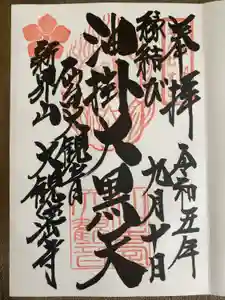 奉拝
令和五年
九月十日
縁結び
油掛大黒天
仙台大観音
新界山
大観密寺